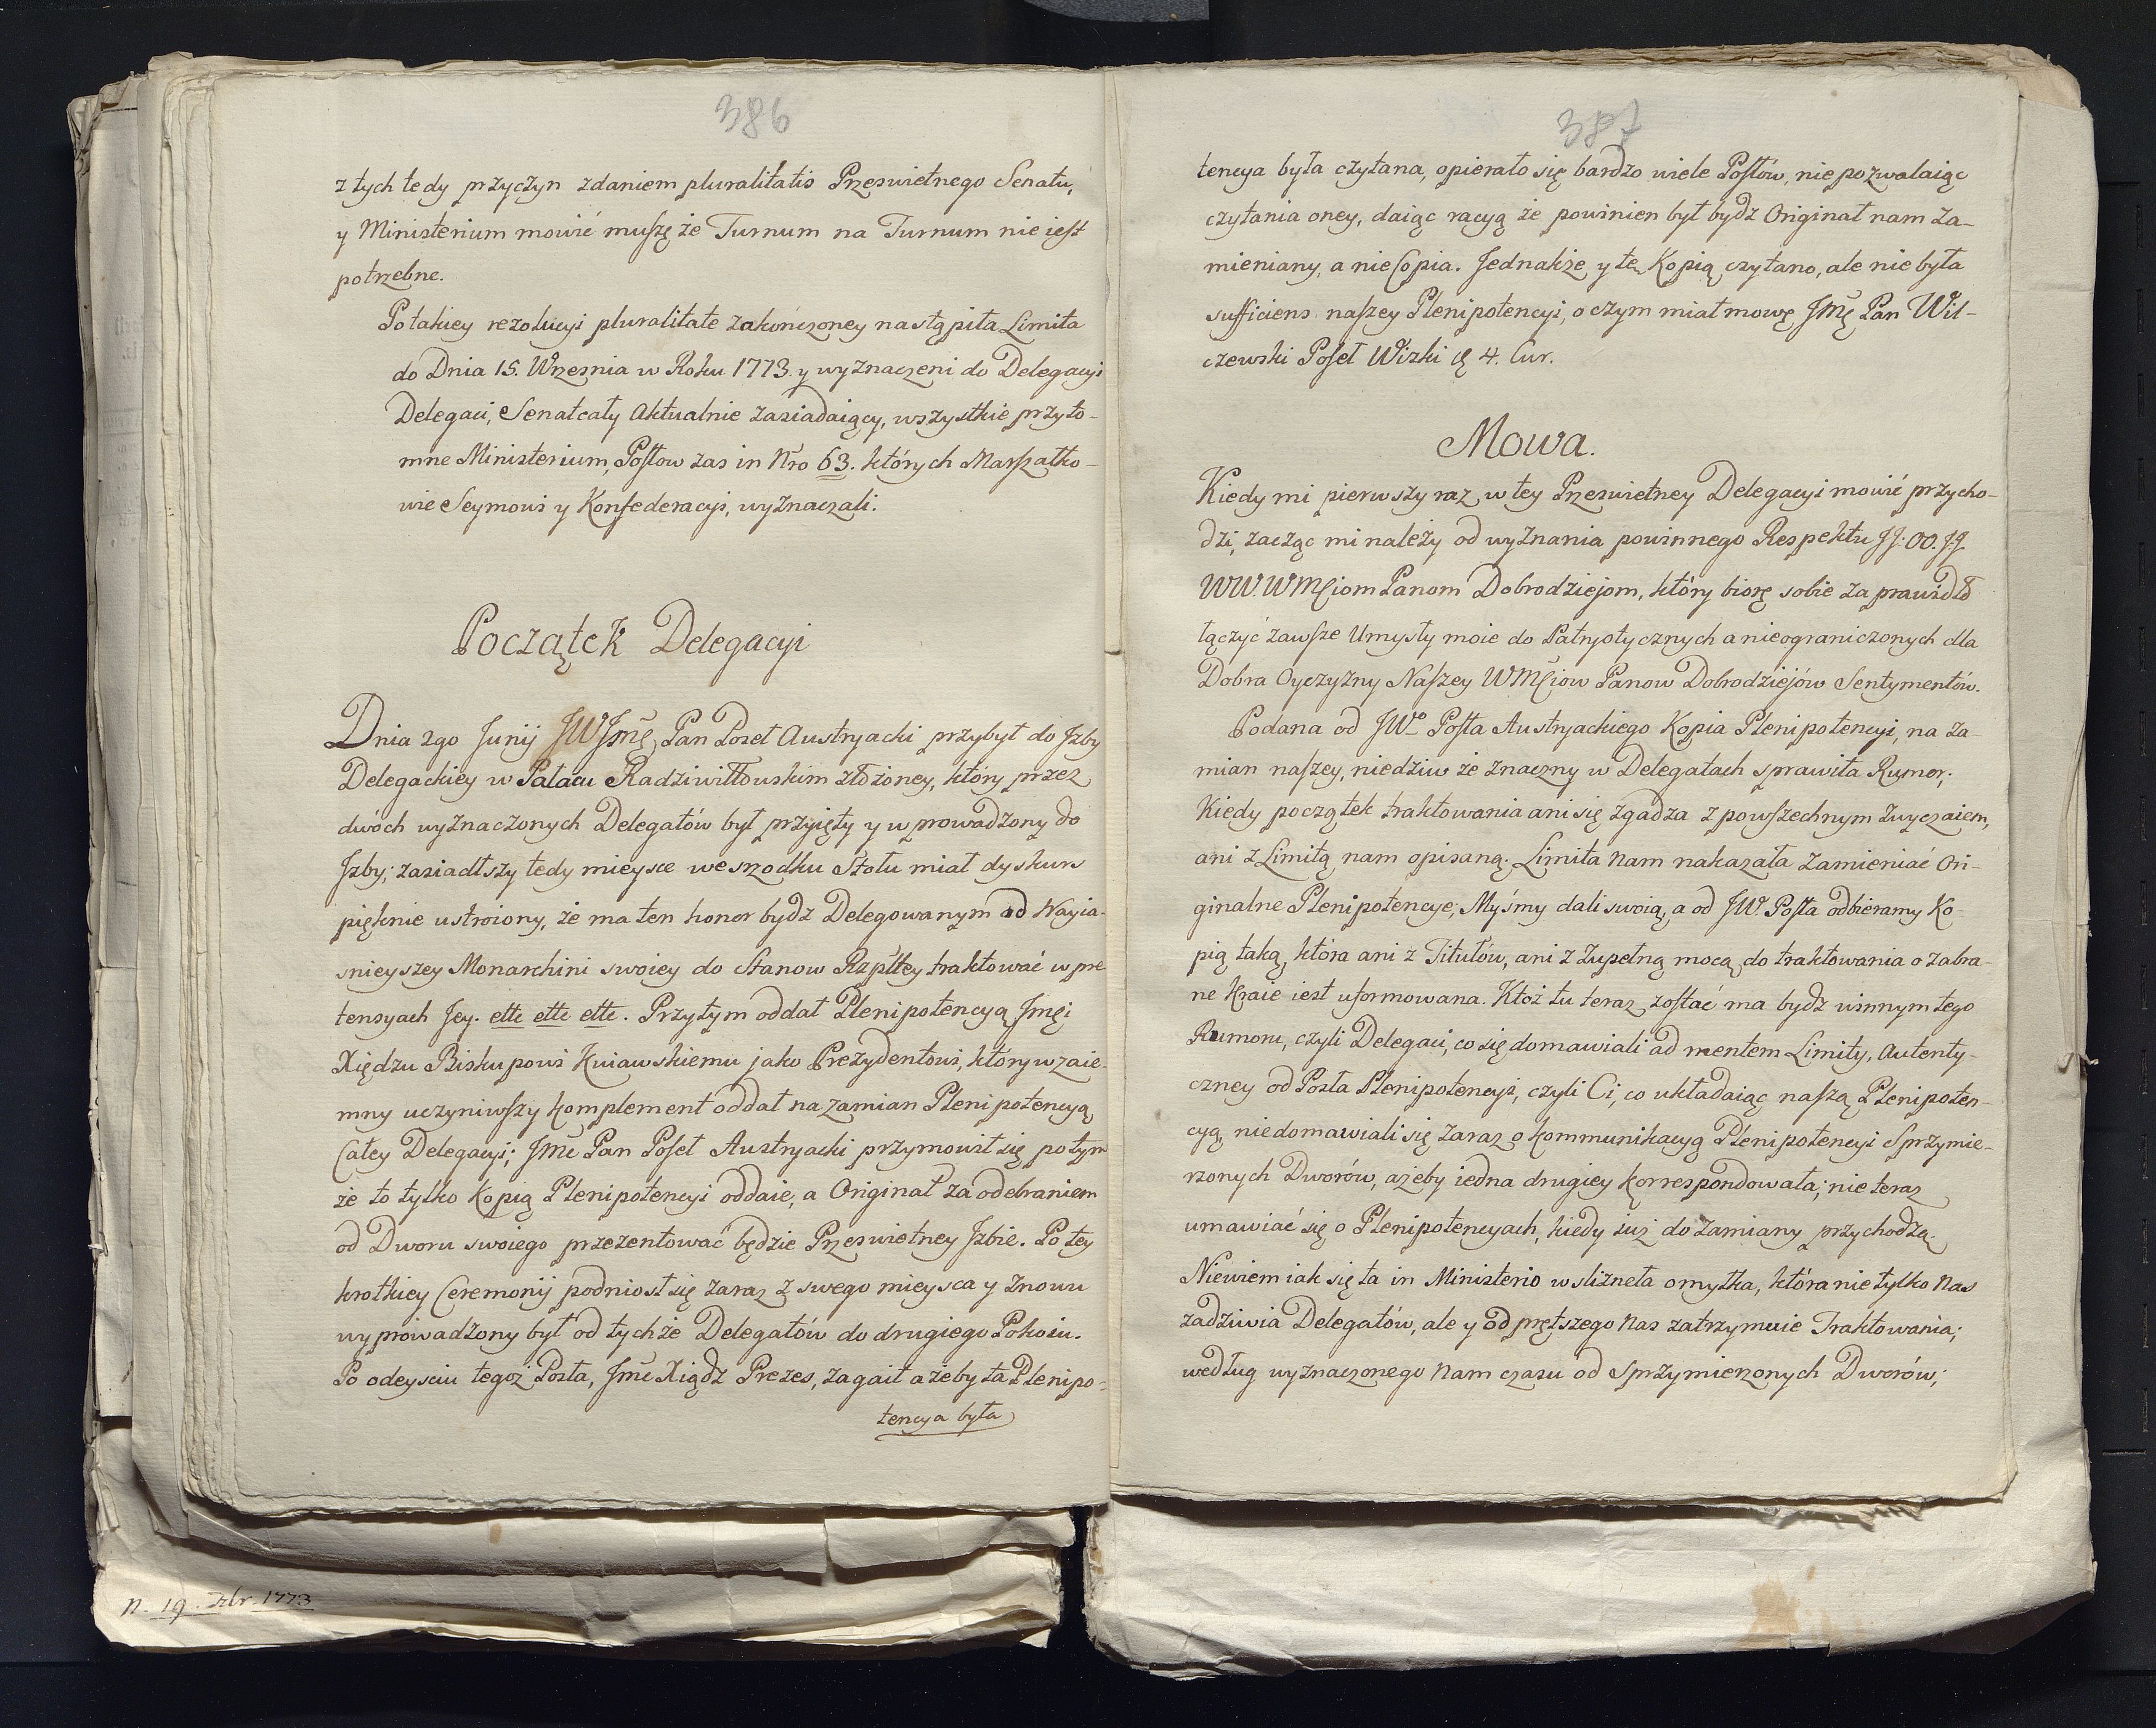 386
z tych tedy przyczyn zdaniem pluralitatis Przeswietnego Senatu,
y Ministerium mowić muszę że Turnum na Turnum nie iest
potrzebne.
Po takiey rezolucyi pluralitate zakończoney nastąpiła Limita
do Dnia 15. Wrzesnia w Roku 1773. y wyznaczeni do Delegacyi
Delegaci, Senat cały Aktualnie zasiadaiący, wszystkie przyto-
mne Ministerium, Posłow zas in Nro 63. których Marszałko-
wie Seymowi y Konfederacyi, wyznaczali.
Początek Delegacyi
Dnia 2go Junij JWJmć Pan Poseł Austryacki przybył do Jzby
Delegackiey w Pałacu Radziwiłłowskim złożoney, który przez
dwóch wyznaczonych Delegatów był przyięty y wprowadzony do
Jzby; zasiadłszy tedy mieysce we srzodku Stołu miał dyskurs
pięknie ustroiony, że ma ten honor bydź Delegowanym od Nayia-
snieyszey Monarchini swoiey do Stanow Rzpltey traktować w pre
tensyach Jey. ettc ettc ettc. Przytym oddał Plenipotencyą Jmci
Xiędzu Biskupowi Kuiawskiemu jako Prezydentowi, który wzaie-
mny uczyniwszy komplement oddał na zamian Plenipotencyą
Całey Delegacyi; Jmć Pan Poseł Austryacki przymowił się po tym
że to tylko kopią Plenipotencyi oddaie, a Originał za odebraniem
od Dworu swoiego prezentować będzie Przeswietney Jzbie. Po tey
krotkiey Ceremonij podniosł się zaraz z swego mieysca y znowu
wyprowadzony był od tychże Delegatów do drugiego Pokoiu.
Po odeysciu tegoż Posła, Jmć Xiądz Prezes, zagaił ażeby ta Plenipo-
tencya była
N. 19. Xbr. 1773
387
tencya była czytana, opierało się bardzo wiele Posłów, nie pozwalaiąc
czytania oney, daiąc racyą że powinien był bydź Originał nam za-
mieniany, a nie Copia. Jednakże y tę Kopią czytano, ale nie była
sufficiens naszey Plenipotencyi, o czym miał mowę Jmć Pan Wil-
czewski Poseł Wizki 4. Cur.
Mowa.
Kiedy mi pierwszy raz w tey Przeswietney Delegacyi mowić przycho-
dzi, zacząc mi należy od wyznania powinnego Respektu JJ. OO. JJ.
WW. WMCiom Panom Dobrodziejom, który biorę sobie za prawidło
łączyć zawsze Umysły moie do Patryotycznych a nieograniczonych dla
Dobra Oyczyzny Naszey WMCiow Panow Dobrodziejów Sentymentów.
Podana od JWo Posła Austryackiego Kopia Plenipotencyi, na za-
mian naszey, niedziw że znaczny w Delegatach sprawiła Rumor;
Kiedy początek traktowania ani się zgadza z powszechnym zwyczaiem,
ani z Limitą nam opisaną. Limita nam nakazała zamieniać Ori-
ginalne Plenipotencye; Myśmy dali swoią, a od JW. Posła odbieramy Ko-
pią taką, która ani z Titułów, ani z zupełną mocą do traktowania o zabra-
ne Kraie iest uformowana. Ktoż tu teraz zostać ma bydź winnym tego
Rumoru, czyli Delegaci, co się domawiali ad mentem Limity, Autenty-
czney od Posła Plenipotencyi, czyli Ci, co układaiąc naszą Plenipoten-
cyą, niedomawiali się zaraz o kommunikacyą Plenipotencyi Sprzymie-
rzonych Dworów, ażeby iedna drugiey korrespondowała; nie teraz
umawiać się o Plenipotencyach, kiedy iuż do zamiany przychodzą.
Niewiem iak się ta in Ministerio wslizneła omyłka, która nie tylko nas
zadziwia Delegatów, ale y od prętszego nas zatrzymuie Traktowania;
według wyznaczonego nam czasu od Sprzymierzonych Dworów;